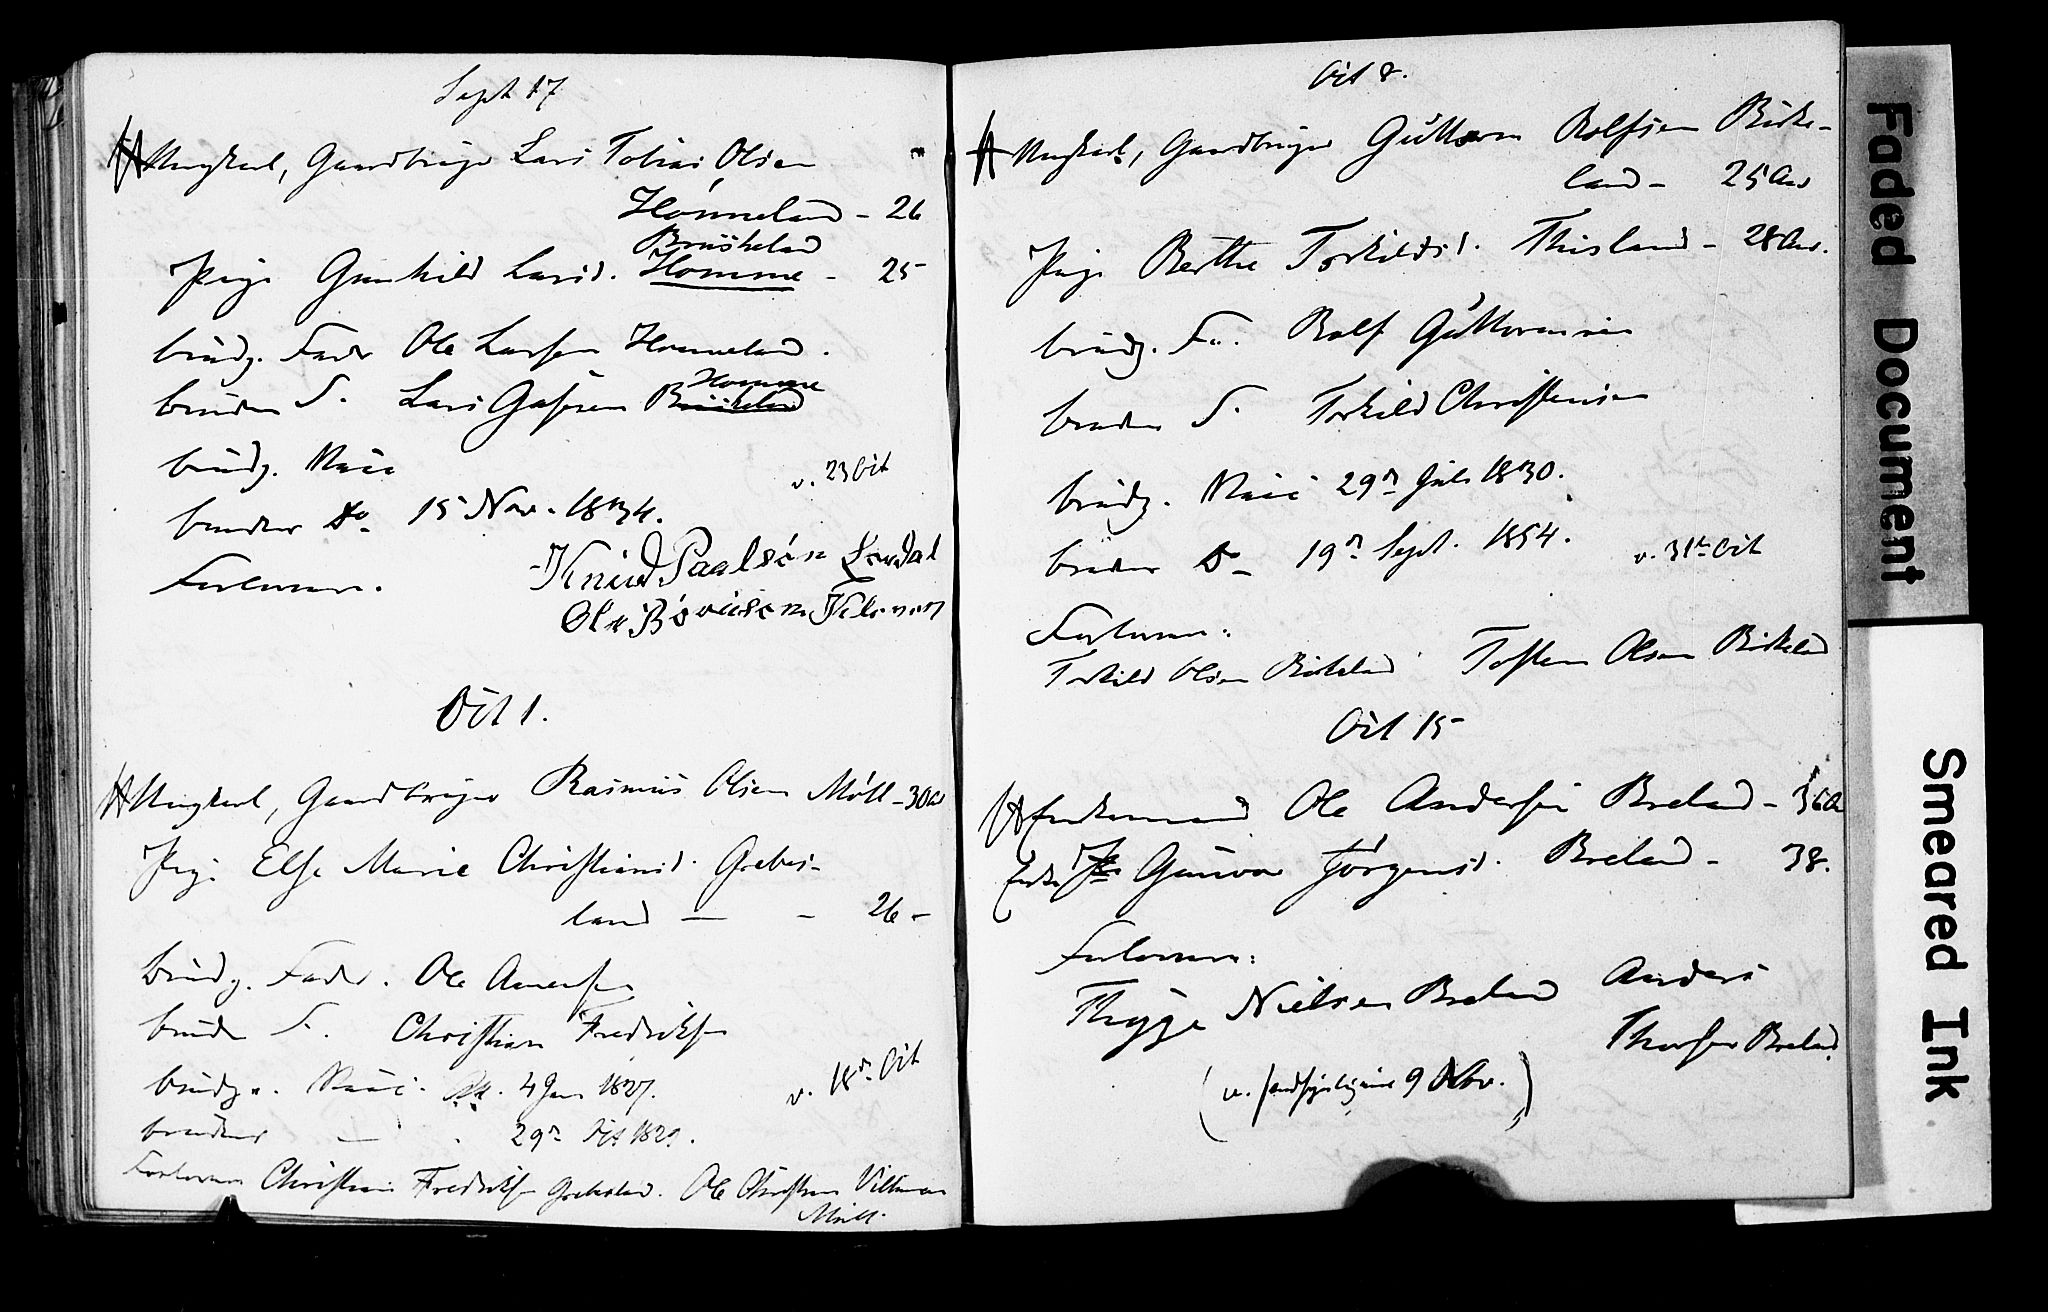 Sept 17
Ungkarl, Gaardbruger Lars Tobias Olsen
Honneland - 26
Bruskeland
Pige Gunhild Larsd. Homme - 25
brudg. Fader Ole Larsen Honneland.
bruden F. Lars Gahrsen Bruskeland Homme
brudg. Vacc
bruden Do 15 Nov. 1834.
v. 23 Oct
Forlovere.
Knud Paalsen Lordal
Ole
Oct 1.
Ungkarl, Gaardbruger Rasmus Olsen Möll - 30 A
Pige Else Marie Christiansd. Grebes-
land - - 26 -
brudg. Fader. Ole Amensen
bruden F. Christian Fredriksen
brudg. Vacc. 4 Jan 1827.
v. 18de Oct
bruden — 29de Oct 1829.
Forlovere Christian Fredriksen Grebesland. Ole Christian Villumsen
Möll.
Oct 8.
Ungkarl, Gaardbruger Guttorm Rolfsen Birke-
land - 25 Aar
Pige Berthe Torkildsd. Thisland - 28 Aar.
brudg. Fa. Rolf Guttormsen
bruden F. Torkild Christensen
brudg. Vacc 29de Juli 1830.
bruden Do 19de Sept. 1854.
v. 31te Oct
Forlovere:
Torkild Olsen Birkeland Tosten Olsen Birkeland
Oct 15
Enkemand Ole Andersen Breland - 36 A
Enke Gunvor Jörgensd. Breland - 38.
Forlovere:
Thygge Nielsen Breland Anders
Thorsen Breland
(v. 9 Nov.)
Faded Document
Smeared Ink